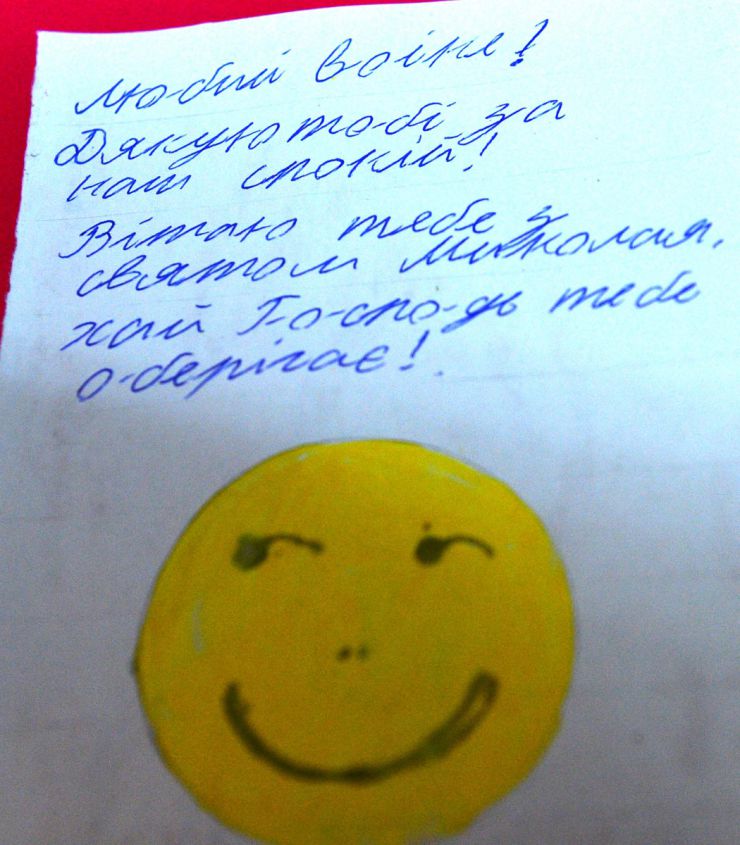 Любий воїне!
Дякую тобі за
наш спокій!
Вітаю тебе з
святом Миколая,
хай Господь тебе
оберігає!